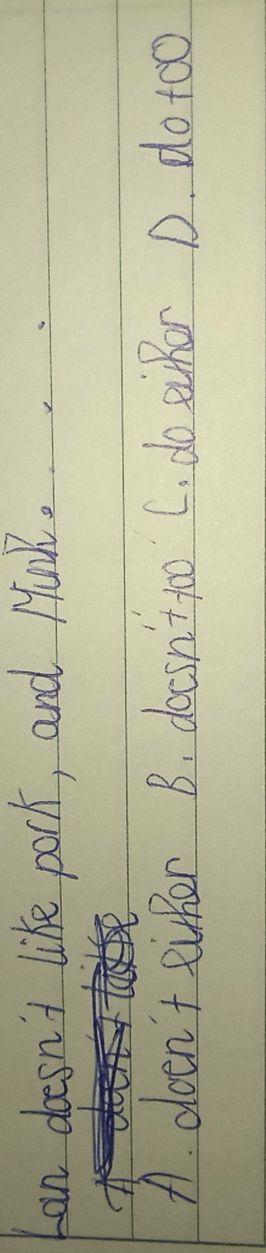 Lan doesn't like pork, and Minh. . . .
A. doen't either B. doesn't too C. do either D. do too